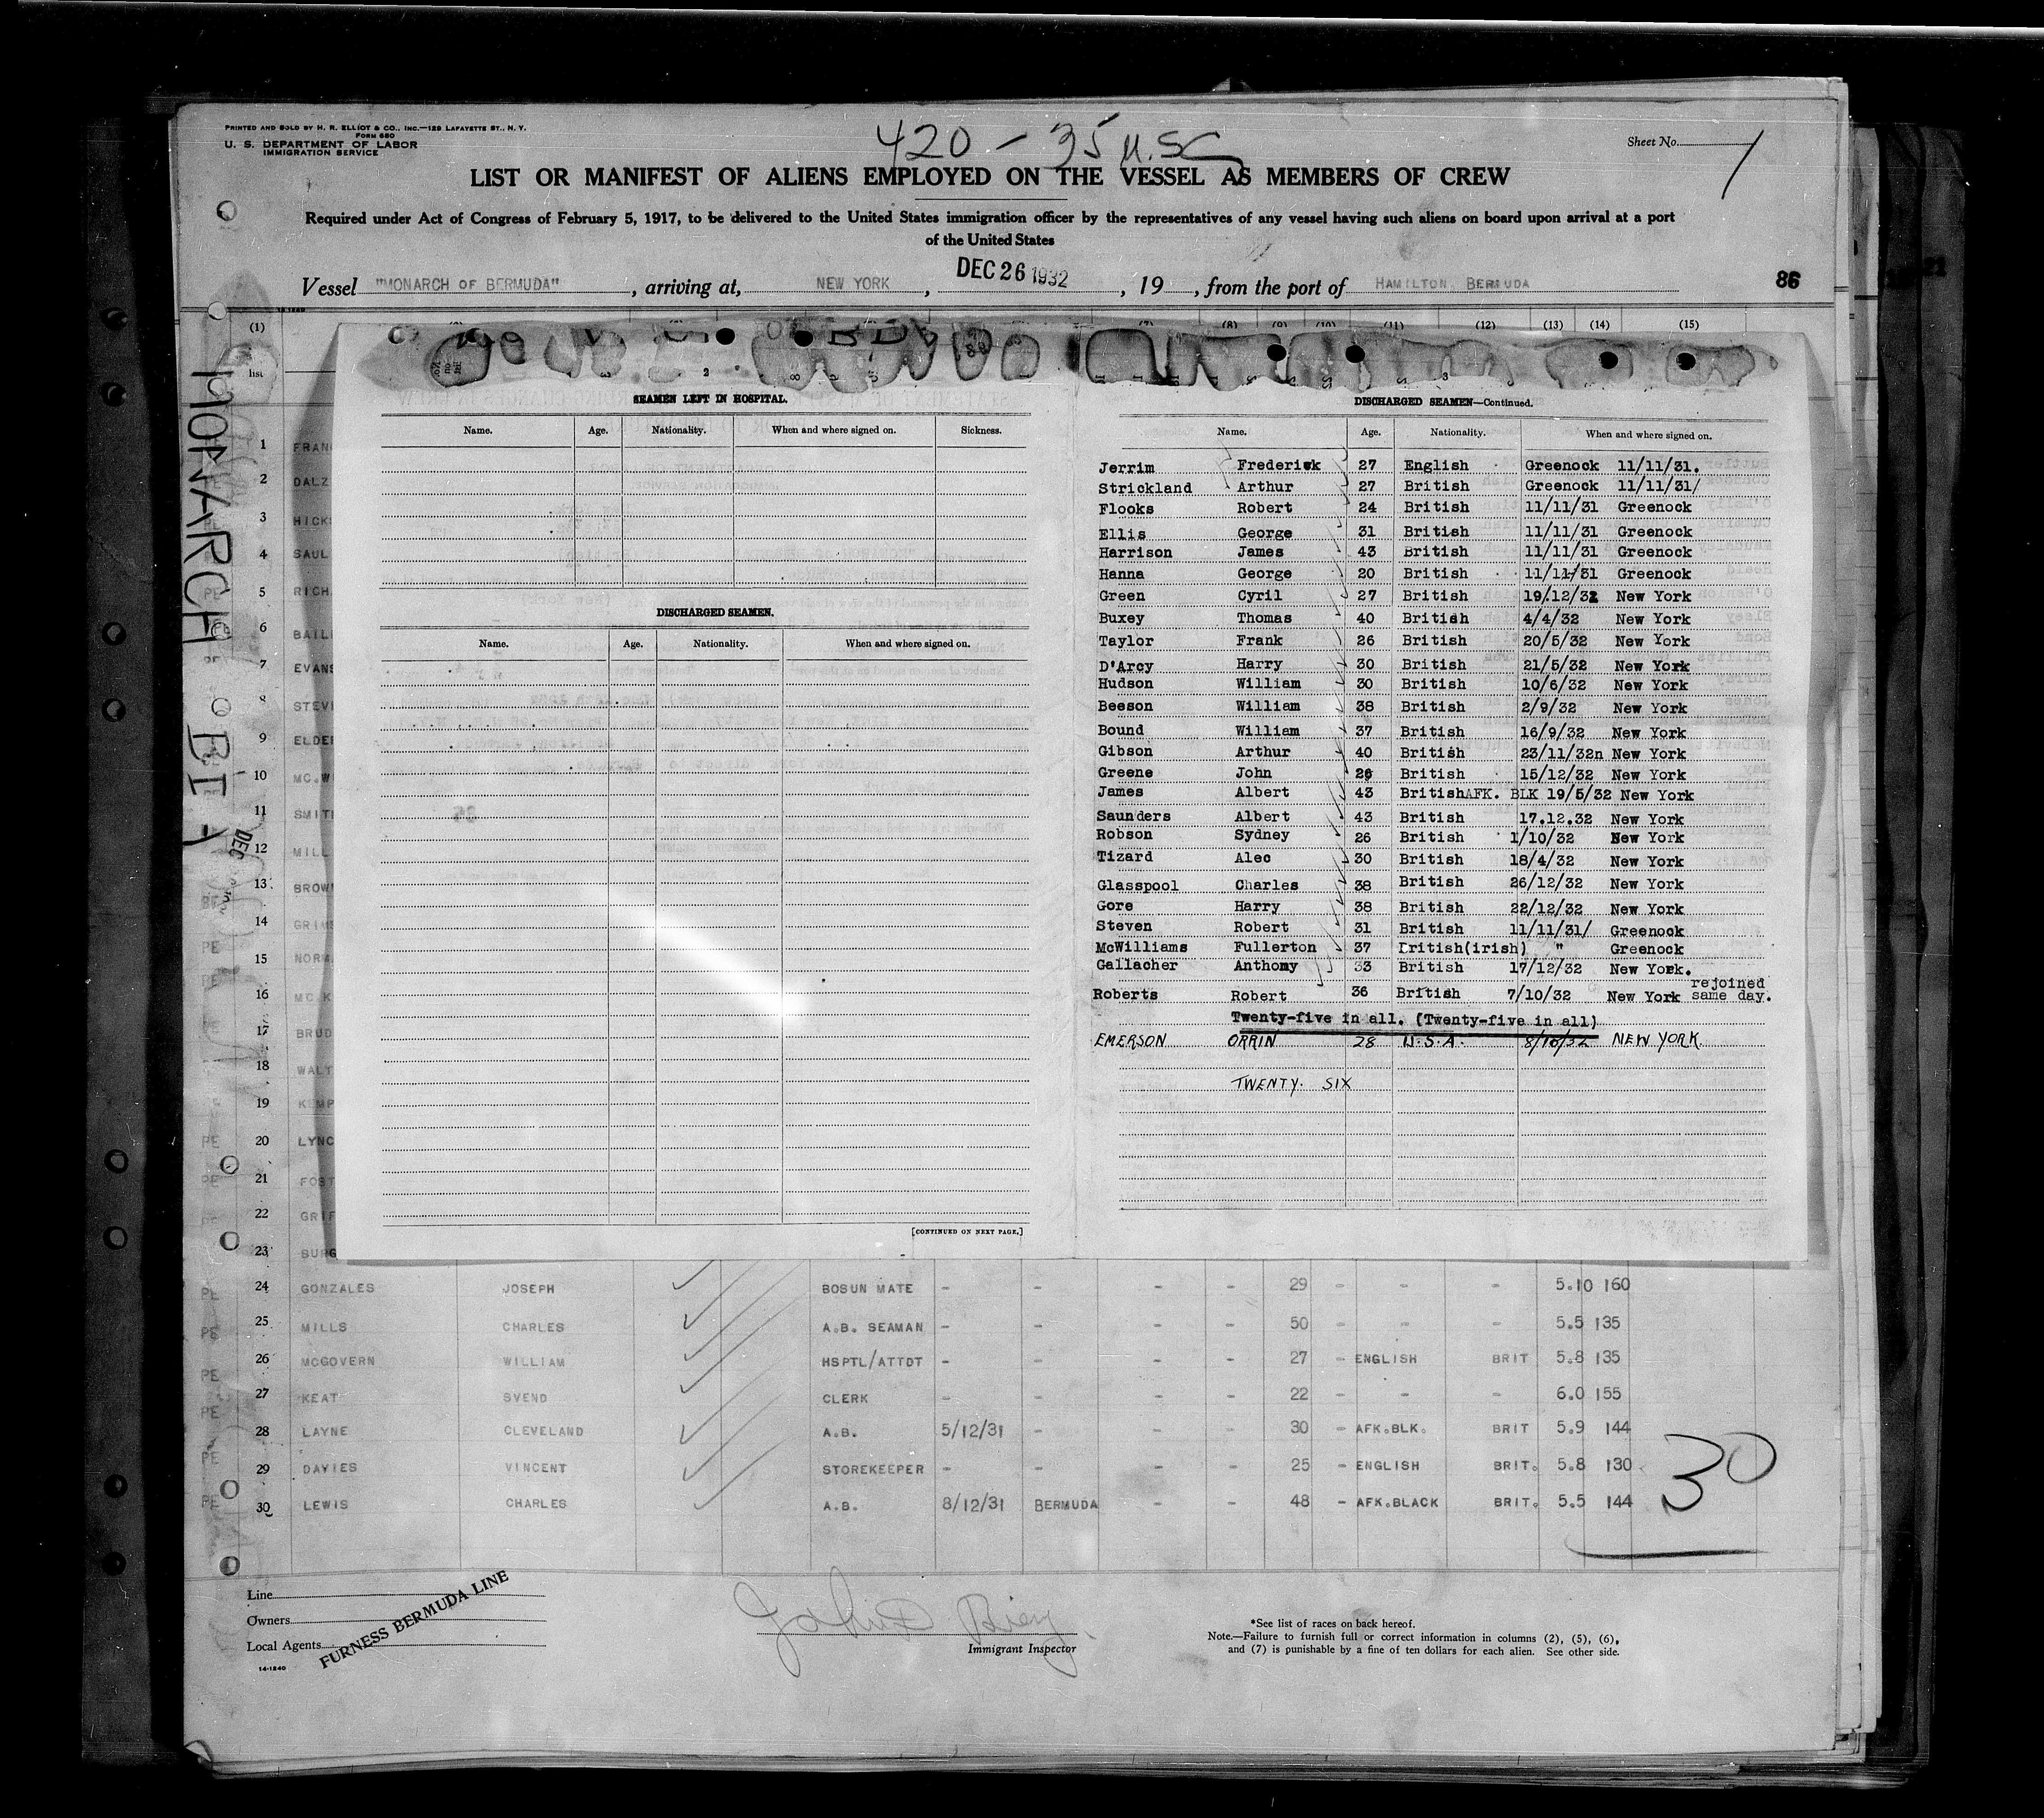 PRINTED AND SOLD BY H. R. ELLIOT & CO., INC.—129 LAFAYETTE ST., N. Y.
FORM 680
U. S. DEPARTMENT OF LABOR
IMMIGRATION SERVICE
420 - 35 U.S.C
Sheet No. 1
LIST OR MANIFEST OF ALIENS EMPLOYED ON THE VESSEL AS MEMBERS OF CREW
Required under Act of Congress of February 5, 1917, to be delivered to the United States immigration officer by the representatives of any vessel having such aliens on board upon arrival at a port
of the United States
Vessel "MONARCH OF BERMUDA", arriving at, NEW YORK, DEC 26 1932, 19, from the port of HAMILTON BERMUDA 86
(1) (7) (8) (9) (10) (11) (12) (13) (14) (15)
list
MONARCH OF BDA
DEC
SEAMEN LEFT IN HOSPITAL.
Name. Age. Nationality. When and where signed on. Sickness.
DISCHARGED SEAMEN.
Name. Age. Nationality. When and where signed on.
[CONTINUED ON NEXT PAGE.]
DISCHARGED SEAMEN—Continued.
Name. Age. Nationality. When and where signed on.
Jerrim Frederick 27 English Greenock 11/11/31.
Strickland Arthur 27 British Greenock 11/11/31/
Flooks Robert 24 British 11/11/31 Greenock
Ellis George 31 British 11/11/31 Greenock
Harrison James 43 British 11/11/31 Greenock
Hanna George 20 British 11/11/31 Greenock
Green Cyril 27 British 19/12/32 New York
Buxey Thomas 40 British 4/4/32 New York
Taylor Frank 26 British 20/5/32 New York
D'Arcy Harry 30 British 21/5/32 New York
Hudson William 30 British 10/6/32 New York
Beeson William 38 British 2/9/32 New York
Bound William 37 British 16/9/32 New York
Gibson Arthur 40 British 23/11/32n New York
Greene John 26 British 15/12/32 New York
James Albert 43 BritishAFK. BLK 19/5/32 New York
Saunders Albert 43 British 17.12.32 New York
Robson Sydney 26 British 1/10/32 New York
Tizard Alec 30 British 18/4/32 New York
Glasspool Charles 38 British 26/12/32 New York
Gore Harry 38 British 22/12/32 New York
Steven Robert 31 British 11/11/31/ Greenock
McWilliams Fullerton 37 British(irish) " Greenock
Gallacher Anthony 33 British 17/12/32 New York.
Roberts Robert 36 British 7/10/32 New York rejoined same day.
Twenty-five in all. (Twenty-five in all)
EMERSON ORRIN 28 U.S.A. 8/10/32 NEW YORK.
TWENTY. SIX
1 FRAN
2 DALZ
3 HICK
4 SAUL
5 RICH
6 BAIL
7 EVANS
8 STEV
9 ELDE
10 MC.W
11 SMIT
12 MILL
13 BROW
14 GRI
15 NORM
16 MC.K
17 BRUD
18 WALT
19 KEMP
20 LYNC
21 FOST
22 GRIF
23 BURG
24 GONZALES JOSEPH BOSUN MATE - - - - 29 - - - 5.10 160
25 MILLS CHARLES A.B. SEAMAN - - - - 50 - - - 5.5 135
26 MCGOVERN WILLIAM HSPTL/ATTDT - - - - 27 - ENGLISH BRIT 5.8 135
27 KEAT SVEND CLERK - - - - 22 - - - 6.0 155
28 LAYNE CLEVELAND A.B. 5/12/31 - - - 30 - AFK.BLK. BRIT 5.9 144
29 DAVIES VINCENT STOREKEEPER - - - - 25 - ENGLISH BRIT. 5.8 130
30 LEWIS CHARLES A.B. 8/12/31 BERMUDA - - 48 - AFK.BLACK BRIT. 5.5 144
30
Line
Owners
Local Agents
FURNESS BERMUDA LINE
14-1240
Immigrant Inspector
*See list of races on back hereof.
Note.—Failure to furnish full or correct information in columns (2), (5), (6),
and (7) is punishable by a fine of ten dollars for each alien. See other side.